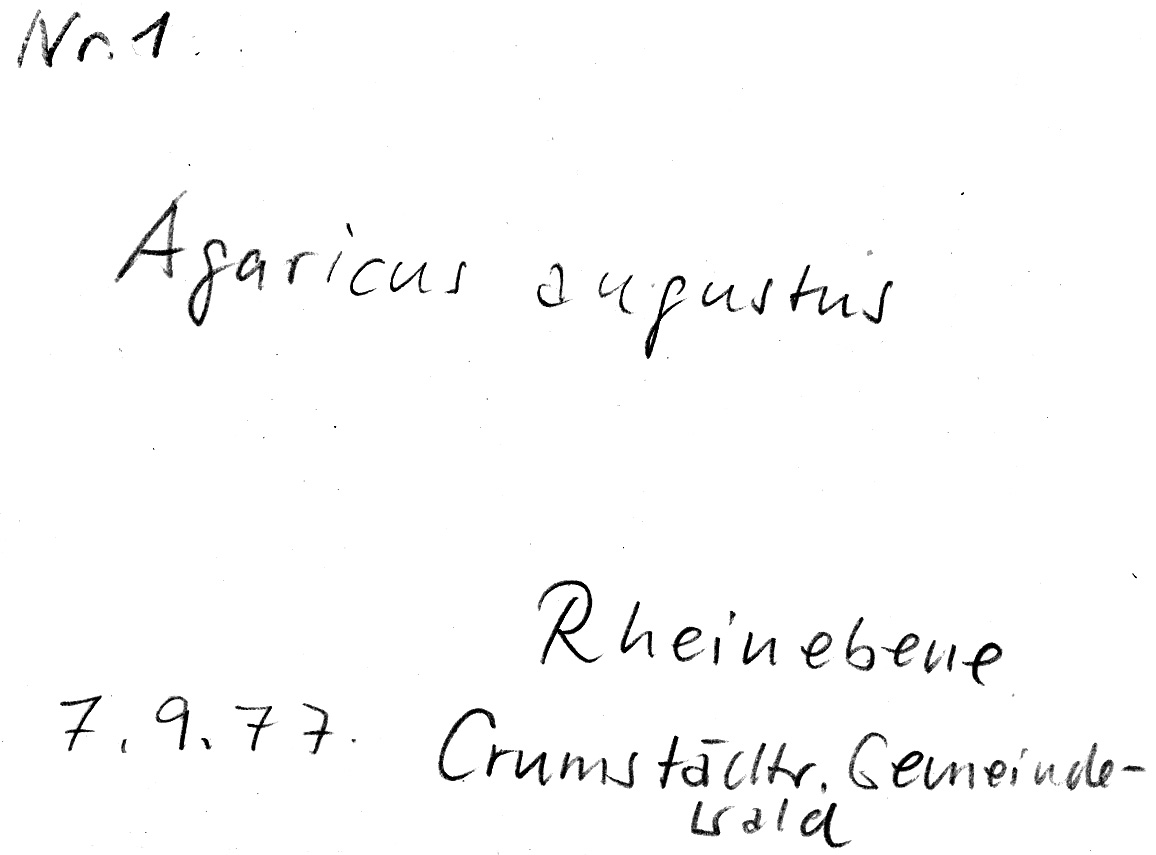 Nr. 1.
Agaricus augustus
Rheinebene
7.9.77. Crumstädtr. Gemeinde-
wald